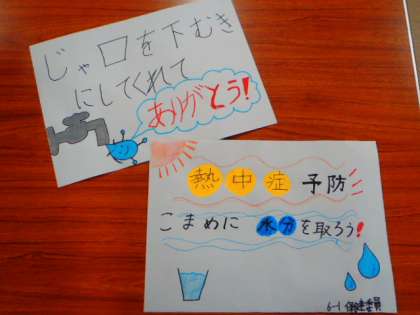 じゃ口を下むき
にしてくれて
ありがとう!
熱中症予防
こまめに水分を取ろう!
6-1 保健委員